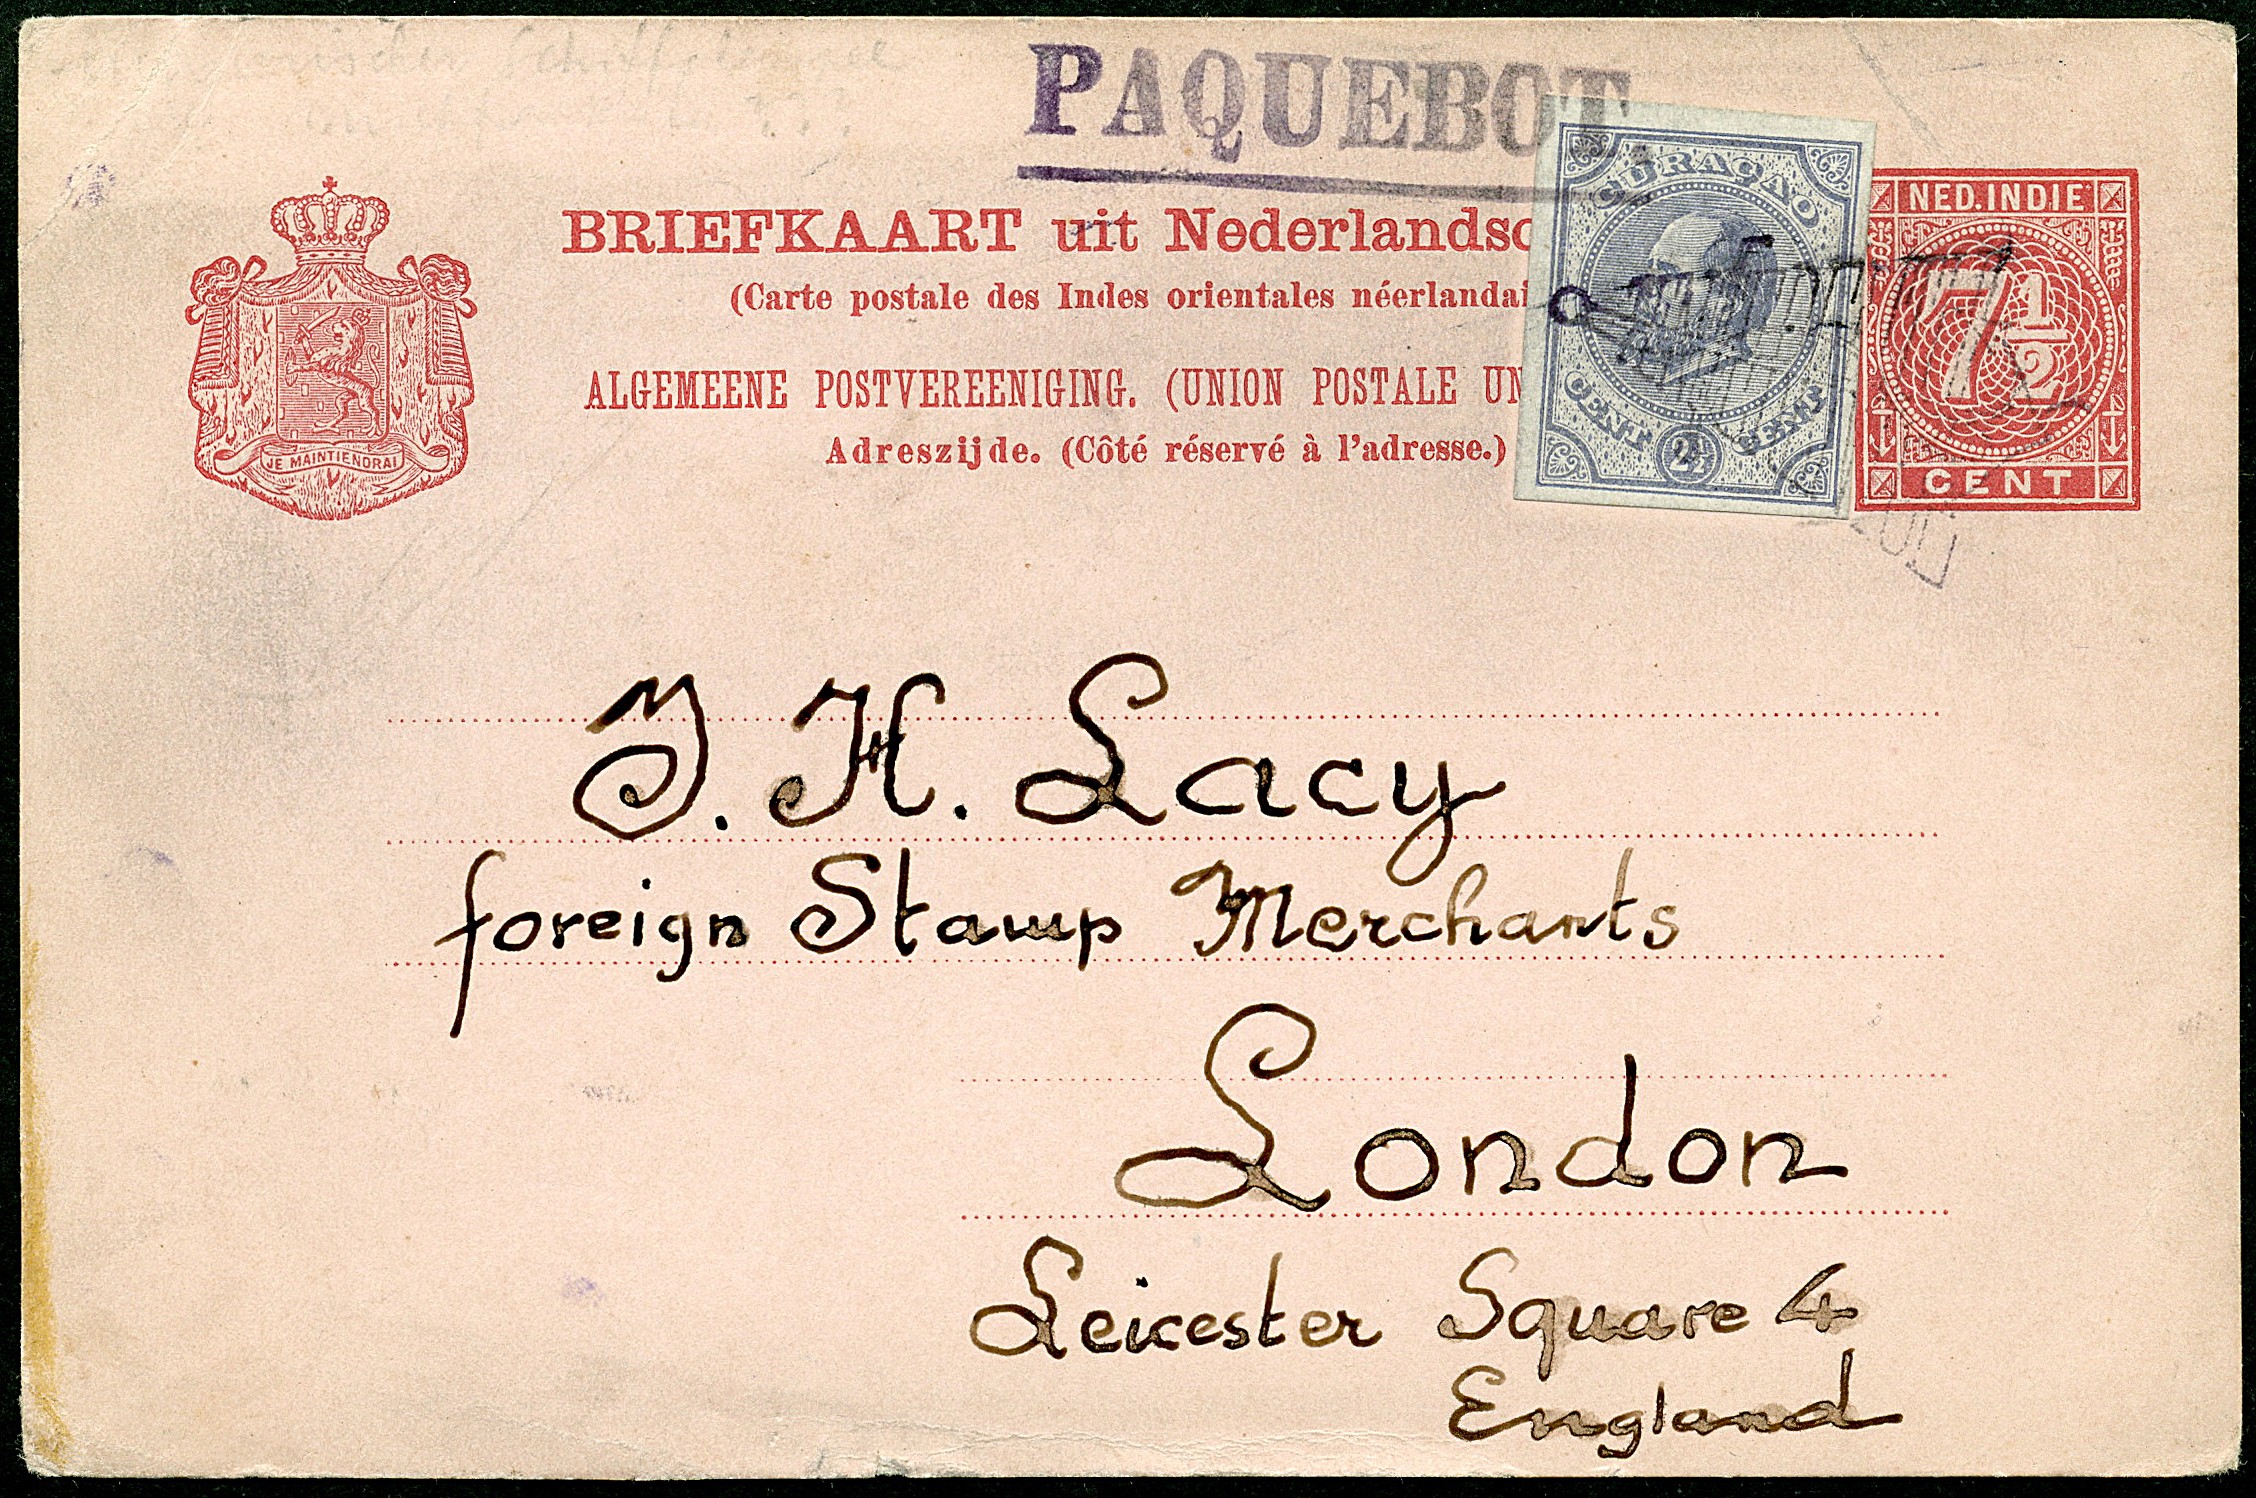 PAQUEBOT
BRIEFKAART uit Nederlandsc
(Carte postale des Indes orientales néerlandai
ALGEMEENE POSTVEREENIGING. (UNION POSTALE UN
Adreszijde. (Côté réservé à l'adresse.)
JE MAINTIENDRAI
CURAÇAO
CENT 2½ CENT
NED. INDIE
7½
CENT
J. H. Lacy
foreign Stamp Merchants
London
Leicester Square 4
England